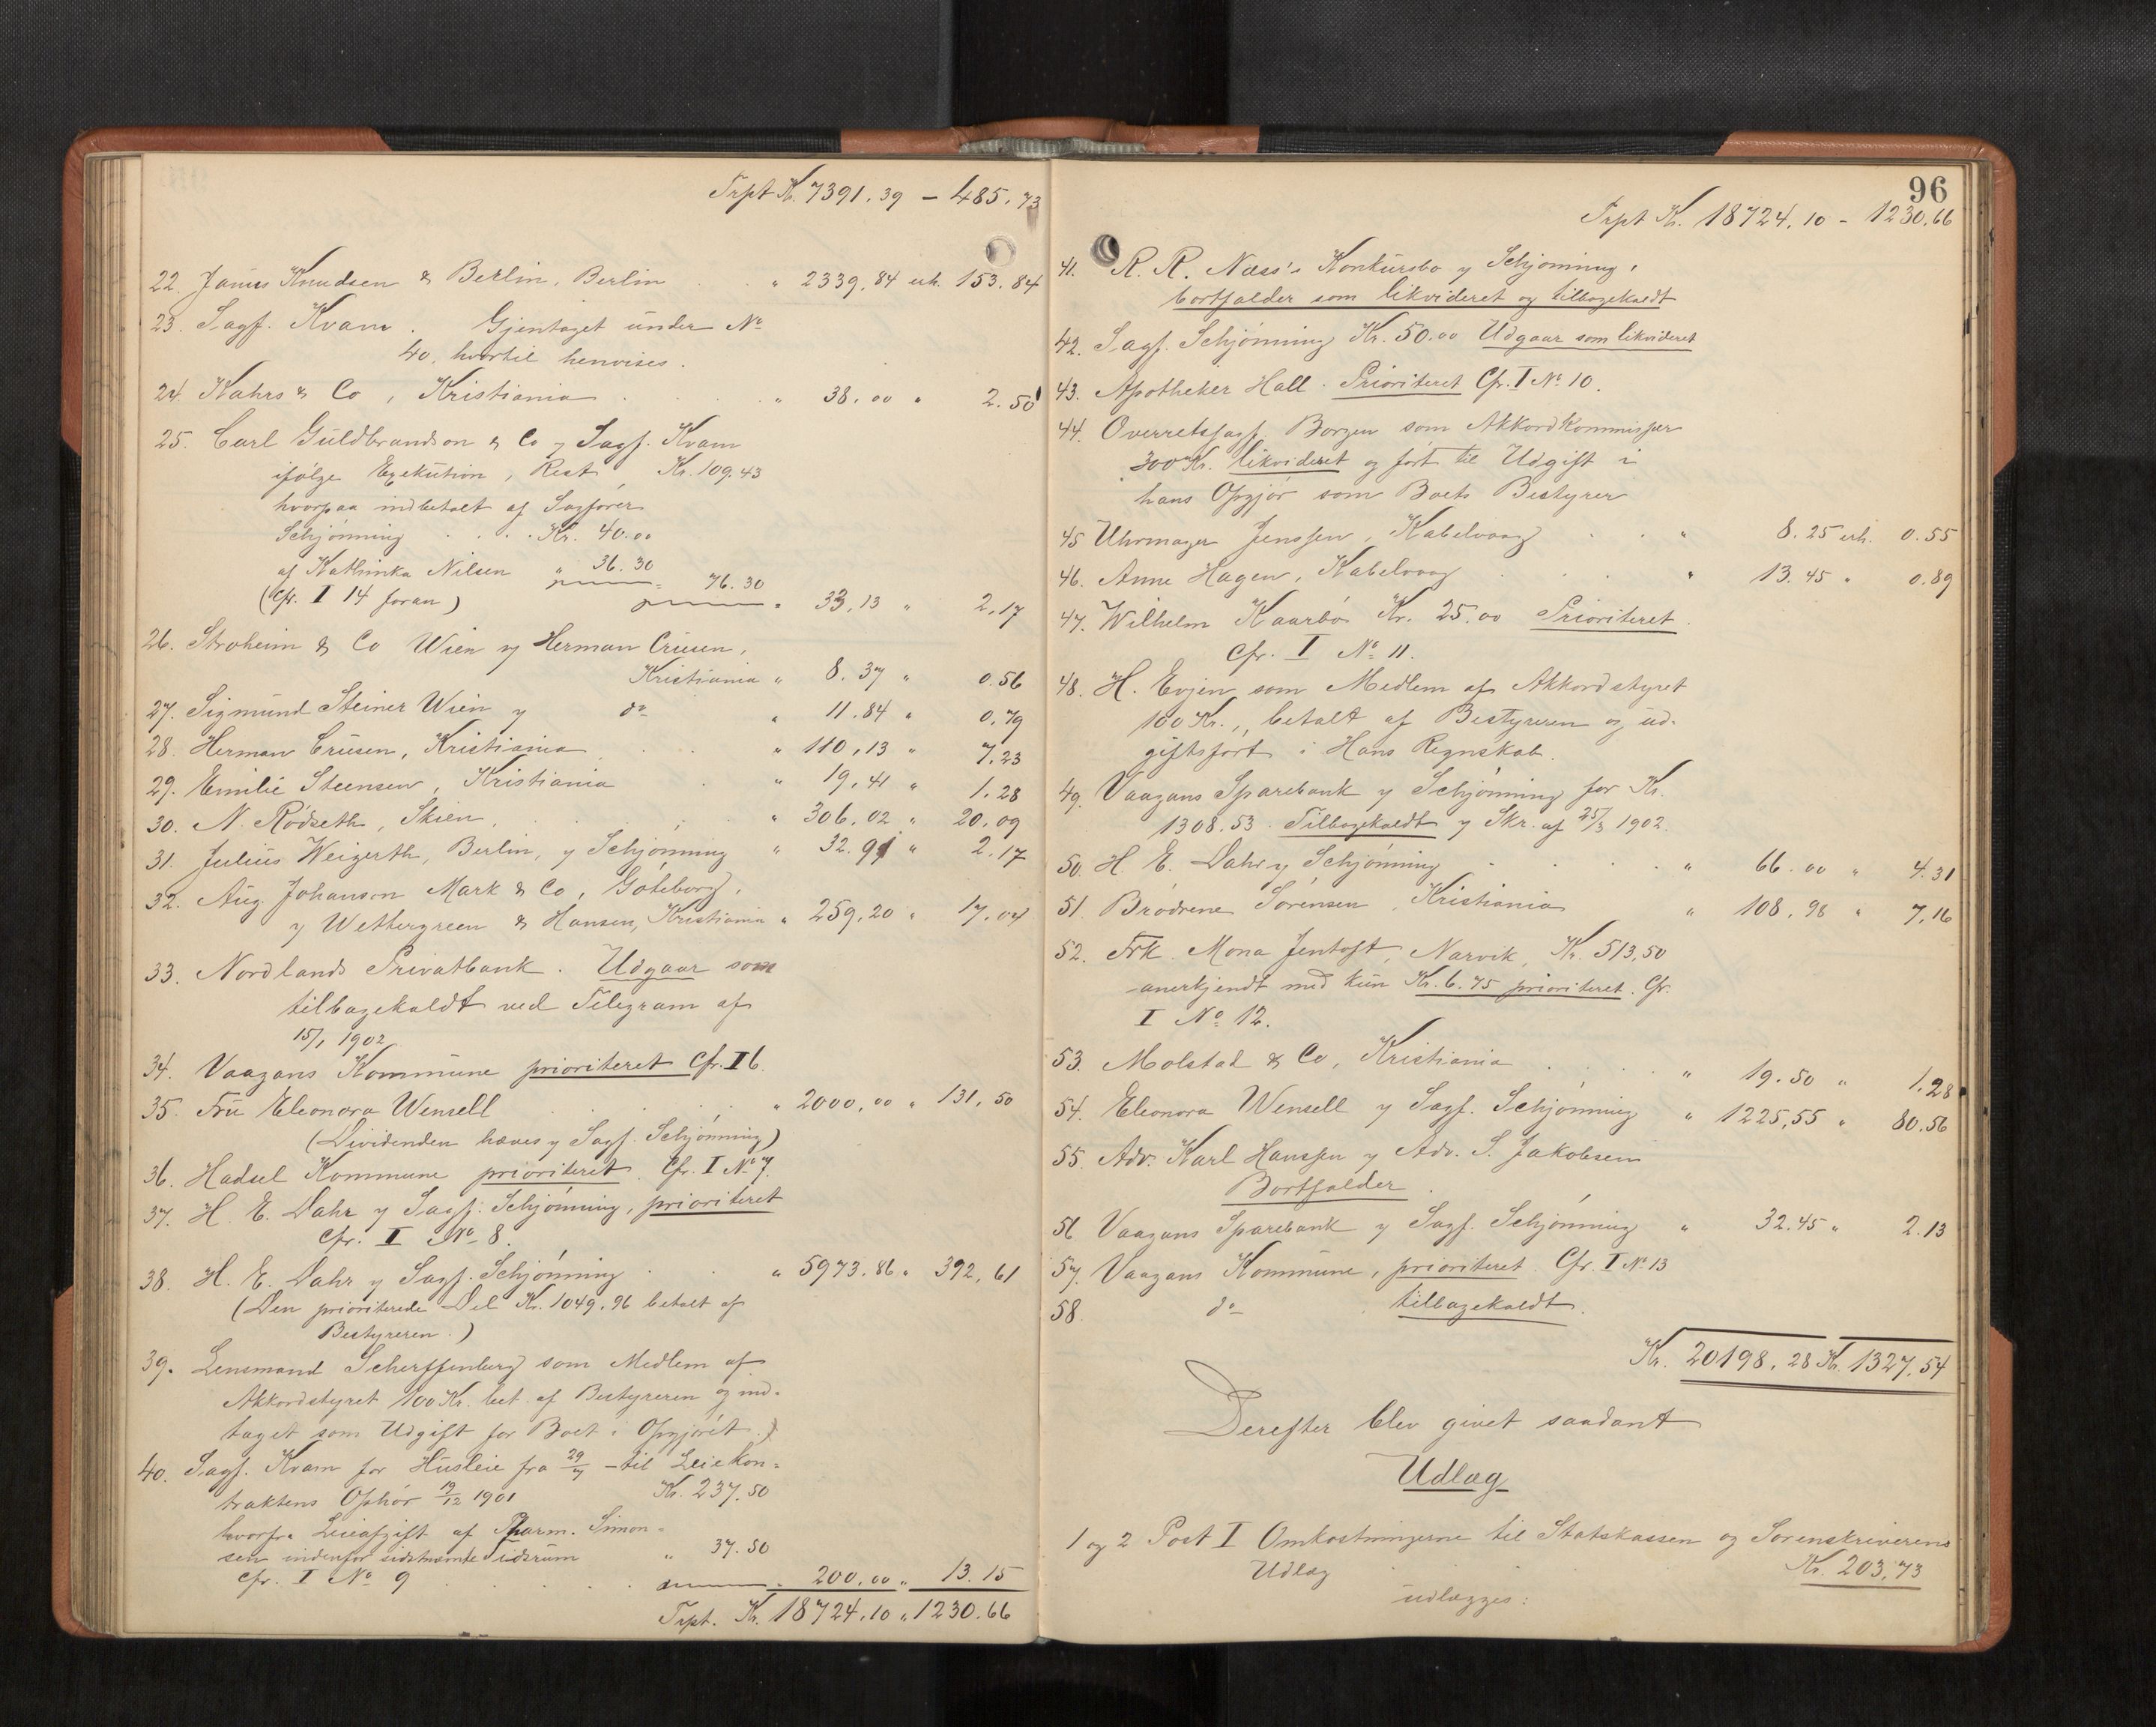 Trpt Kr. 7391.39 – 485.73
22. Janus Knudsen & Berlin, Berlin . . " 2339.84 erh. 153.84
23. Sagf. Kvam. Gjentaget under No
40, hvortil henvises.
24. Kahrs & Co, Kristiania . . . " 38.00 " 2.50
25. Carl Guldbrandson & Co v Sagf. Kvam
ifølge Exekution, Rest, Kr. 109.43
hvorpaa indbetalt af Sagfører
Schjønning . . . . Kr. 40.00
af Kathinka Nilsen " 36.30
76.30
(Cfr. I 14 foran) " 33.13 " 2.17
26. Stroheim & Co Wien v Herman Crusen,
Kristiania " 8.37 " 0.56
27. Sigmund Steiner Wien v do " 11.84 " 0.79
28. Herman Crusen, Kristiania . . " 110.13 " 7.23
29. Emilie Steensen, Kristiania . " 19.41 " 1.28
30. N. Rødseth, Skien, . . . . " 306.02 " 20.09
31. Julius Weigerth, Berlin, v Schjønning " 32.91 " 2.17
32. Aug. Johanson Mark & Co, Göteborg,
v Wettergreen & Hansen, Kristiania " 259.20 " 17.04
33. Nordlands Privatbank. Udgaar som
tilbagekaldt ved Telegram af
15/1 1902
34. Vaagans Kommune prioriteret Cfr. I 6.
35. Fru Eleonora Wensell . . . . " 2000,00 " 131,50
(Dividenden hæves v Sagf. Schjønning)
36. Hadsel Kommune prioriteret. Cfr. I No 7.
37. H. E. Dahr v Sagf. Schjønning, prioriteret
Cfr. I No 8.
38. H. E. Dahr v Sagf. Schjønning . . " 5973.86 " 392,61
(Den prioriterede Del Kr. 1049.96 betalt af
Bestyreren.)
39. Lensmand Scherffenberg som Medlem af
Akkordstyret 100 Kr. bet. af Bestyreren og ind-
taget som Udgift for Boet i Opgjøret.)
40. Sagf. Kvam for Husleie fra 29/7 – til Leiekon-
traktens Ophør 19/12 1901 Kr. 237.50
hvorfra Leieafgift af Pharm. Simon-
sen indenfor sidstnævnte Tidsrum " 37.50
Cfr. I No 9 . . . . . " 200.00 " 13.15
Trpt. Kr. 18724.10 " 1230.66
96
Trpt Kr. 18724.10 – 1230.66
41. R. R. Næss's Konkursbo v Schjønning,
bortfalder som likvideret og tilbagekaldt
42. Sagf. Schjønning Kr. 50.00 Udgaar som likvideret
43. Apotheker Hall. Prioriteret Cfr. I No 10.
44. Overretssagf. Borgen som Akkordkommissær
300 Kr. likvideret og ført til Udgift i
hans Opgjør som Boets Bestyrer
45 Uhrmager Jenssen, Kabelvaag . . " 8.25 erh. 0.55
46. Anne Hagen, Kabelvaag . . . " 13.45 " 0.89
47. Wilhelm Kaarbø Kr. 25.00 Prioriteret.
Cfr. I No 11.
48. H. Evjen som Medlem af Akkordstyret
100 Kr., betalt af Bestyreren og ud-
giftsført i Hans Regnskab.
49. Vaagans Sparebank v Schjønning for Kr.
1308.53. Tilbagekaldt v Skr. af 25/3 1902.
50. H. E. Dahr v Schjønning . . . . " 66.00 " 4.31
51. Brødrene Sørensen, Kristiania " 108,98 " 7,16
52. Frk. Mona Jentoft, Narvik, Kr. 513,50
anerkjendt med kun Kr. 6.75 prioriteret. Cfr.
I No 12.
53. Molstad & Co, Kristiania . . . . " 19.50 " 1.28
54. Eleonora Wensell v Sagf. Schjønning " 1225,55 " 80.56
55. Adv. Karl Hanssen v Adv. S. Jakobsen
Bortfalder.
56 Vaagans Sparebank v Sagf. Schjønning " 32.45 " 2.13
57. Vaagans Kommune, prioriteret. Cfr. I No 13
58. do tilbagekaldt.
Kr. 20198.28 Kr. 1327.54
Derefter blev givet saadant
Udlæg
1 og 2 Post I Omkostningerne til Statskassen og Sorenskriverens
Udlæg Kr. 203,73
udlægges: